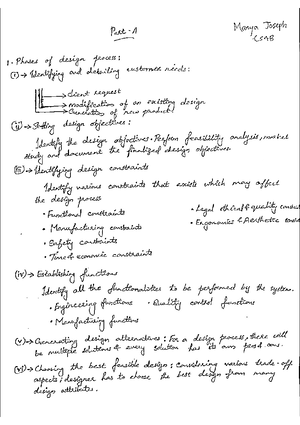 Part-A
Manya Joseph
CS4B
1. Phases of design process:
(i)→ Identifying and detailing customer needs:
→ Client request
→ modification of an existing design
→ Generation of new product
(ii)→ Setting design objectives:
Identify the design objectives. Perform feasibility analysis, market
study and document the finalized design objectives
(iii)→ Identifying design constraints
Identify various constraints that exists which may affect
the design process
• Functional constraints
• Legal ethical & quality
• Manufacturing constraints
• Ergonomics & Aesthetic
• Safety constraints
• Time & economic constraints
(iv)→ Establishing functions
Identify all the functionalities to be performed by the system.
• Engineering functions • Quality control functions
• Manufacturing functions
(v)→ Generating design alternatives: For a design process, there will
be multiple solutions & every solution has its own pros & cons.
(vi)→ Choosing the best feasible design: Considering various trade-off
aspects; designer has to choose the best design from many
design attributes.